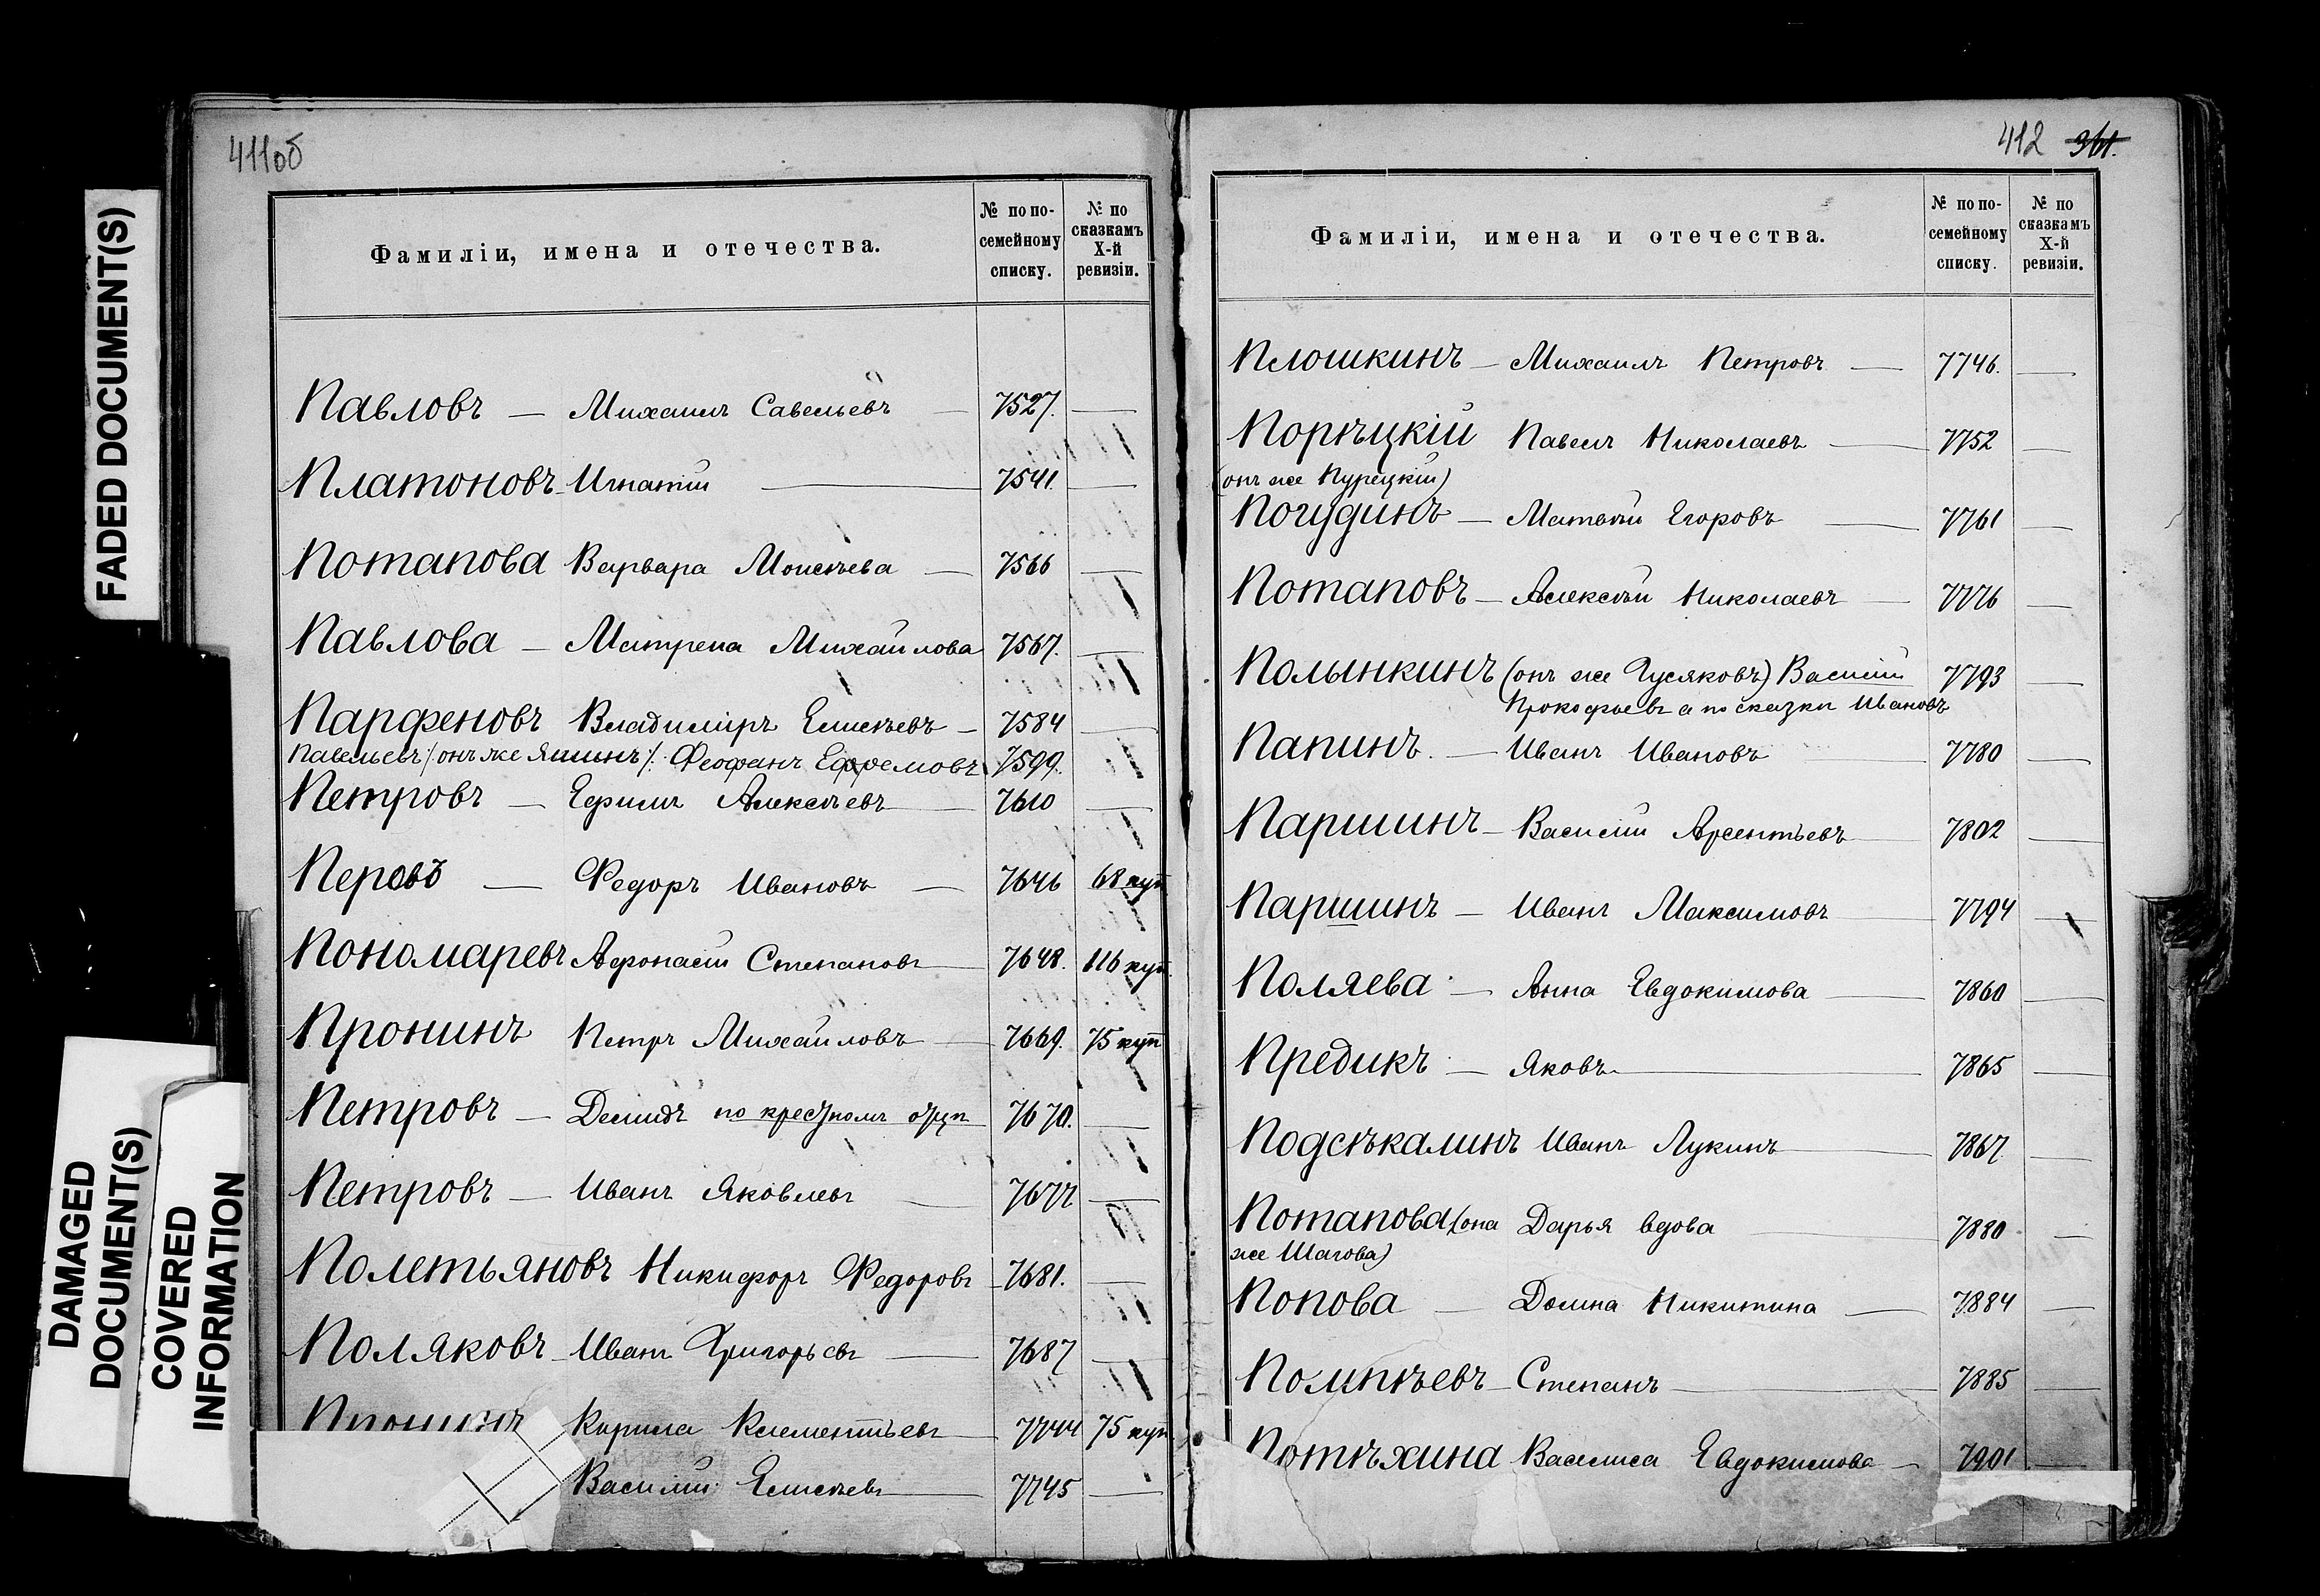 411об
Фамиліи, имена и отечества.
№ по по-
семейному
списку.
№ по
сказкамъ
X-й
ревизіи.
Павловъ — Михаилъ Савельевъ — 7527. —
Платоновъ - Игнатій — 7541. —
Потапова Варвара Моисѣева — 7566 —
Павлова — Матрена Михайлова 7567. —
Парфеновъ Владиміръ Елисѣевъ — 7584 —
Павельевъ /: онъ же Яшинъ :/ Феофанъ Ефремовъ 7599.
Петровъ — Ефимъ Алексѣевъ — 7610 —
Перовъ — Федоръ Ивановъ — 7646 68 куп
Пономаревъ Афонасій Степановъ — 7648. 116 куп.
Пронинъ Петръ Михайловъ — 7669. 75 куп
Петровъ — Демидъ по крестномъ отцѣ 7670. —
Петровъ — Иванъ Яковлевъ — 7677 —
Полетьяновъ Никифоръ Федоровъ - 7681. —
Поляковъ - Иванъ Григорьевъ — 7687 —
Пронинъ Кирила Клементьевъ — 7744 75 куп
Василій Елисѣевъ — 7745 —
412 361.
Фамиліи, имена и отечества.
№ по по-
семейному
списку.
№ по
сказкамъ
X-й
ревизіи.
Плошкинъ — Михаилъ Петровъ — 7746. —
Порѣцкій Павелъ Николаевъ — 7752 —
(онъ же Пурецкій)
Погудинъ — Матвѣй Егоровъ — 7761 —
Потаповъ — Алексѣй Николаевъ — 7776 —
Полынкинъ (онъ же Гусяковъ) Василій 7793 —
Прокофьевъ а по сказки Ивановъ
Папинъ. — Иванъ Ивановъ — 7780 —
Паршинъ — Василій Арсентьевъ — 7802 —
Паршинъ — Иванъ Максимовъ — 7794 —
Поляева — Анна Евдокимова — 7860 —
Предикъ — Яковъ — 7865 —
Подсѣкалинъ Иванъ Лукинъ — 7867 —
Потапова (она Дарья вдова — 7880 —
же Шагова)
Попова — Домна Никитина — 7884 —
Помпѣевъ — Степанъ — 7885 —
Потѣхина Василиса Евдокимова — 7901 —
FADED DOCUMENT(S)
DAMAGED
DOCUMENT(S)
COVERED
INFORMATION